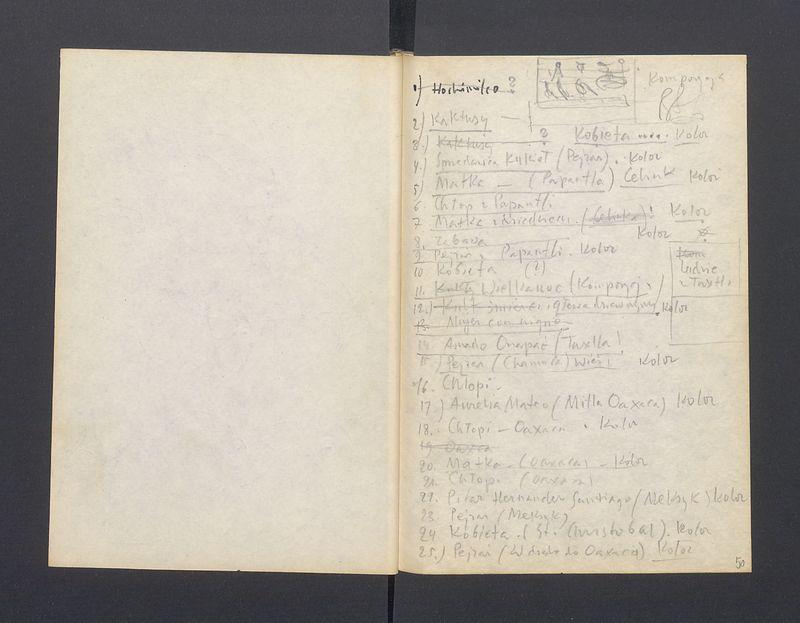 1) Hochimilco ?
Kompozycje
2) Kaktusy —
3.) Kaktusy ? Kobieta .... Kolor
4.) Śmiertanka Kukieł (Pejzaż). Kolor
5) Matka — (Papantla) Kolor
6 Chłop z Papantli
7 Matka z dzieckiem. (Cehinka)! Kolor
8. Zabawa Kolor
9 Pejzaż z Papantli. Kolor
10 Kobieta (?)
ludzie
z Taxtli
11. Kukły Wielkanoc (Kompozycja)
12.) Kukł śmierci i głowa drewniana. Kolor
13. Mujer con
14 Amado (Tuxtla)
15) Pejzaż (Chamula) Wieś Kolor
16. Chłopi.
17) Aurelia Mateo (Mitla Oaxaca) Kolor
18. Chłopi — Oaxaca. Kolor
19 Oaxaca
20. Matka — (Oaxaca) — Kolor
21. Chłopi (Oaxaca)
22. Pilar Hernandez Santiago (Meksyk) Kolor
23 Pejzaż (Meksyk)
24 Kobieta. (St. Christobal). Kolor
25.) Pejzaż (W drodze do Oaxaca) Kolor
50